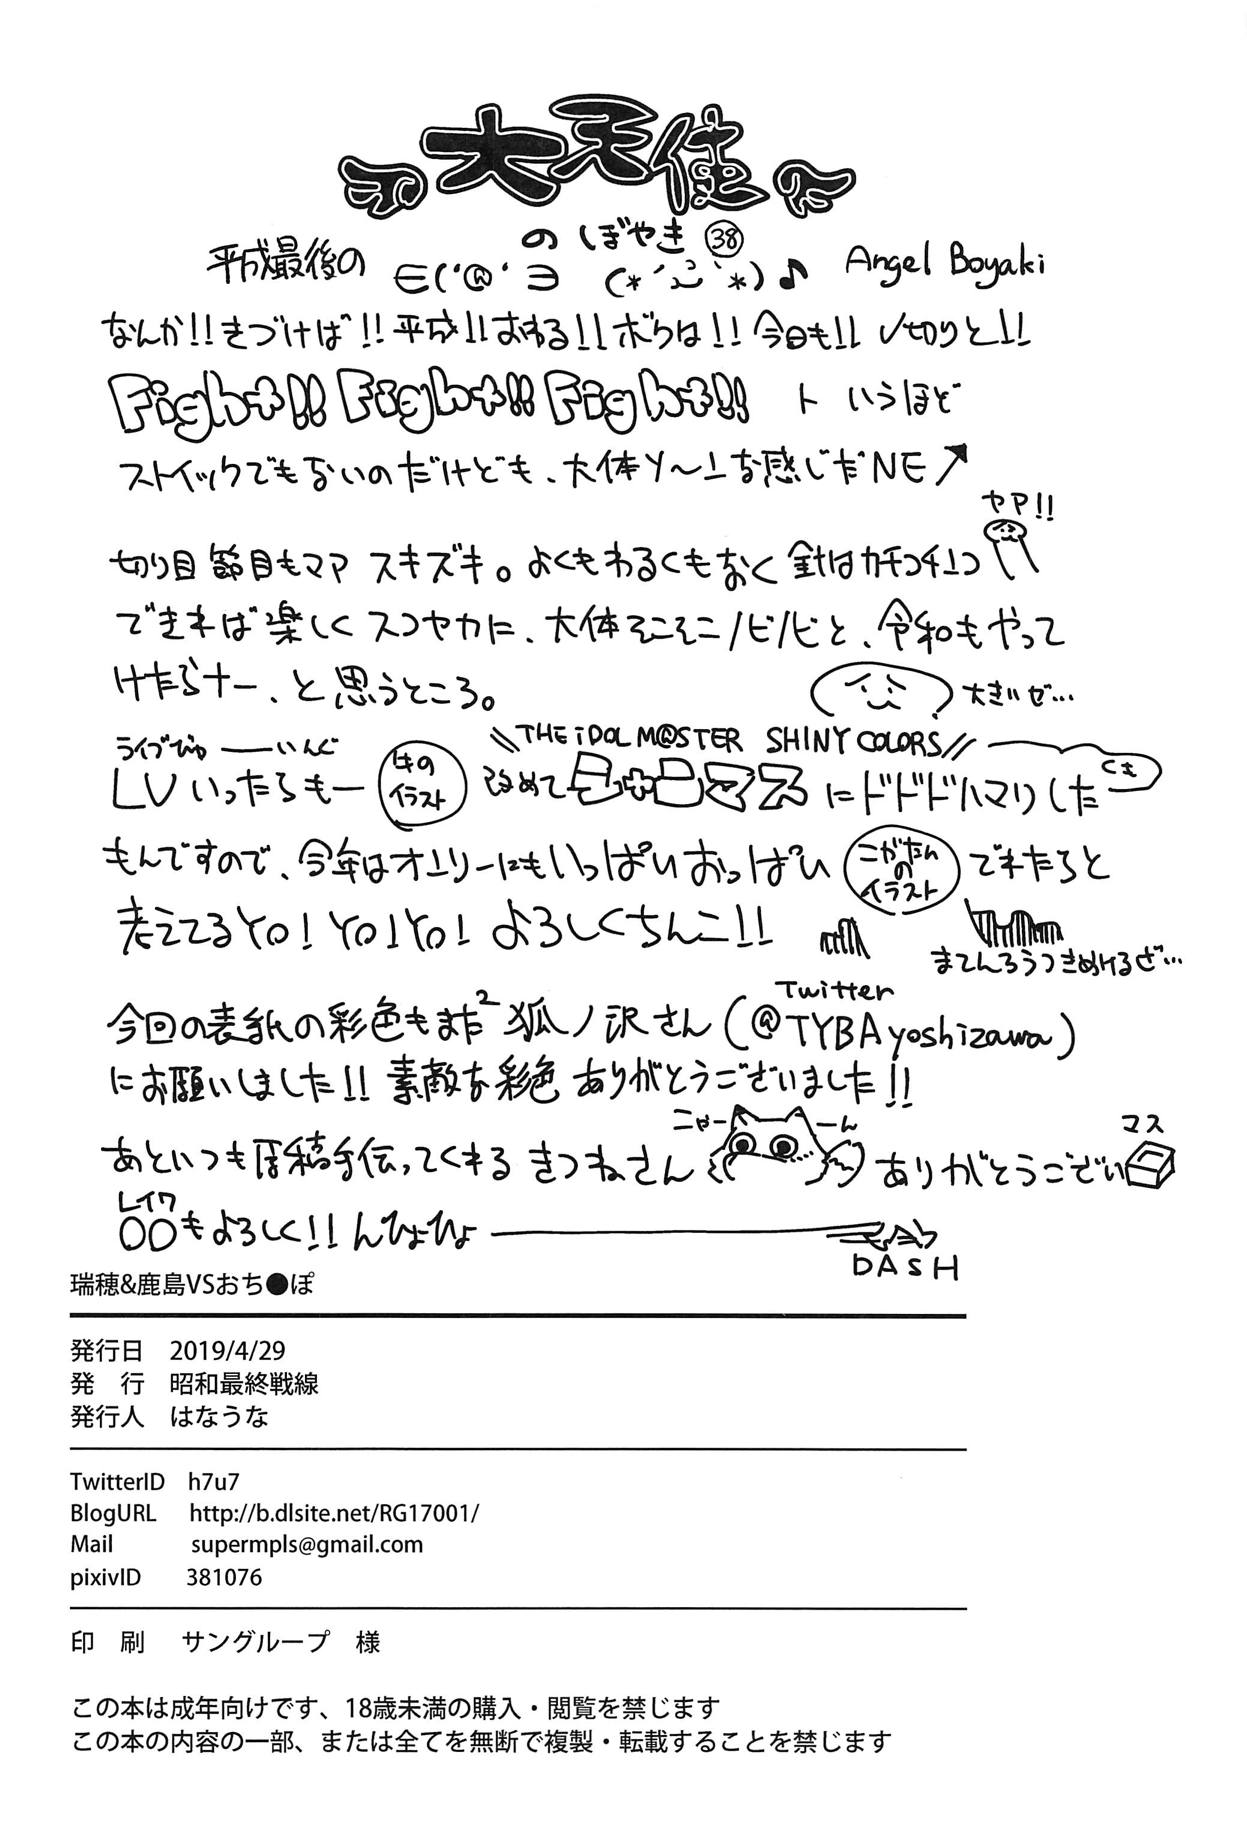 大天使
の ぼやき ㊳
平成最後の
Angel Boyaki
なんか!!きづけば!!平成!!おわる!!ボクは!!今日も!!〆切りと!!
Fight!! Fight!! Fight!! ト いうほど
ストイックでもないのだけども、大体ソ〜ユな感じだNE↗
ヤア!!
切り目 節目もママ スキズキ。よくもわるくもなく 針はカチコチユコ
できれば楽しくスコヤカに、大体そこそこノビノビと、令和もやって
けたらナー、と思うところ。
大きいぜ…
ライブびゅーーいんぐ
\\THE iDOLM@STER SHINY COLORS//
LVいったらもー
件の
イラスト
改めて シャニマス にドドドハマりした
くき
もんですので、今年はオユリーにもいっぱいおっぱい
こがたん
の
イラスト
でれたらと
考えてるYO!YO!YO!よろしくちんこ!!
まてんろうつきぬけるぜ…
Twitter
今回の表紙の彩色もまた² 狐ノ沢さん(@TYBAyoshizawa)
にお願いしました!!素敵な彩色 ありがとうございました!!
こゃーーん
マス
あといつも原稿手伝ってくれる きつねさん ありがとうござい
レイワ
〇〇もよろしく!!んひょひょ
DASH
瑞穂&鹿島VSおち●ぽ
発行日 2019/4/29
発 行 昭和最終戦線
発行人 はなうな
TwitterID h7u7
BlogURL http://b.dlsite.net/RG17001/
Mail supermpls@gmail.com
pixivID 381076
印 刷 サングループ 様
この本は成年向けです、18歳未満の購入・閲覧を禁じます
この本の内容の一部、または全てを無断で複製・転載することを禁じます